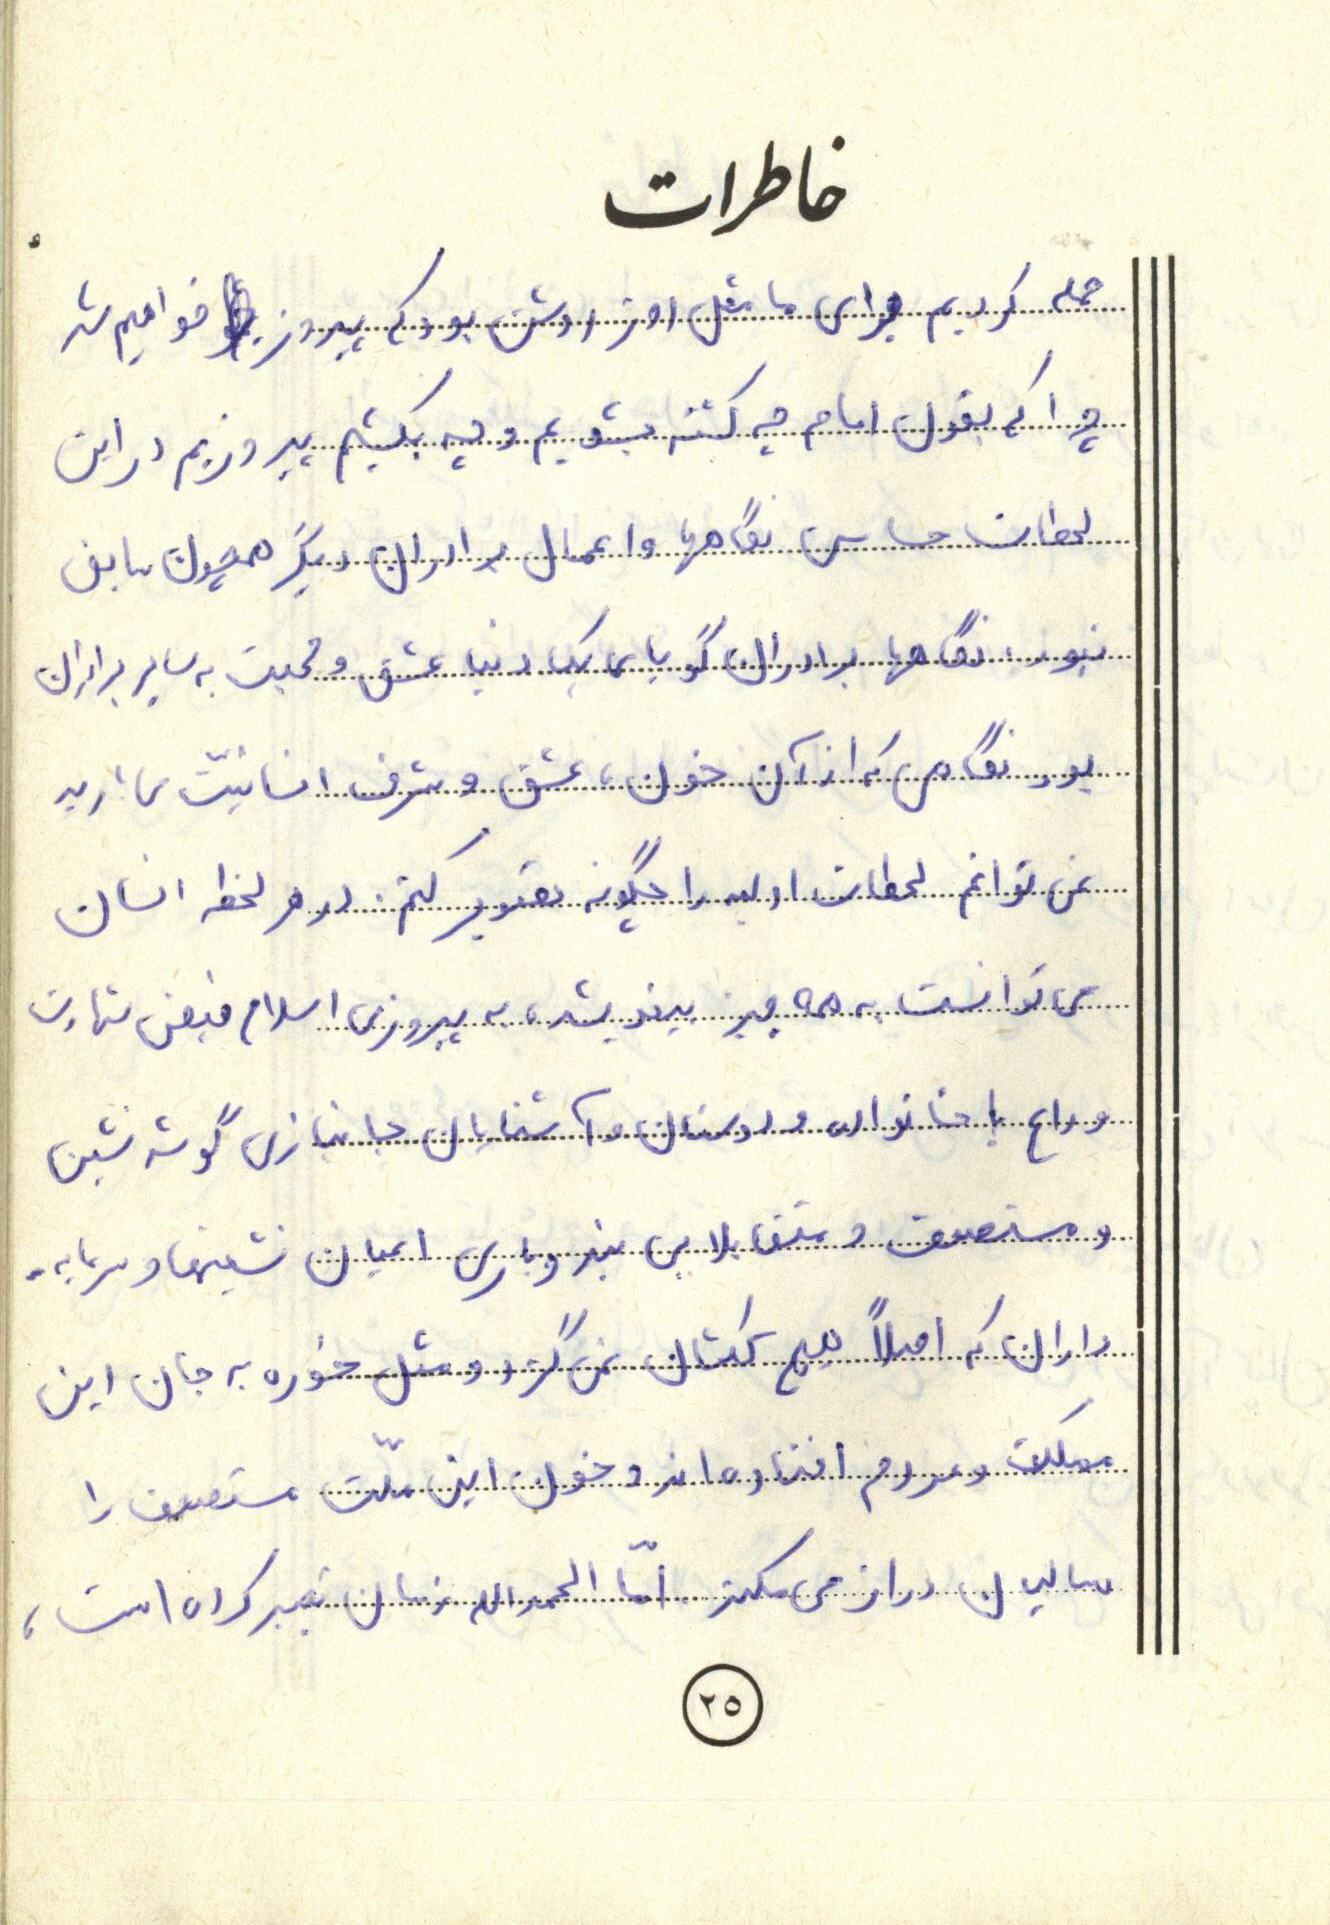 خاطرات
حمله کردیم برای ما مثل روز روشن بود که پیروز خواهیم شد
چرا که بقول امام چه کشته بشویم و چه بکشیم پیروزیم در این
لحظات حساس نگاهها و اعمال برادران دیگر همچون سابق
نبود، نگاهها برادران گویای یک دنیا عشق و محبت به سایر برادران
بود نگاهی که از آن خون، عشق و شرف انسانیّت می بارید
نمی توانم لحظات اولیه را چگونه تصویر کنم. در هر لحظه انسان
می توانست به همه چیز بیندیشد، به پیروزی اسلام فیض شهادت
وداع با خانواده و دوستان و آشنایان جانبازی گوشه نشین
و مستضعف و متقابلا بی بند و باری اعیان نشینها و سرمایه-
داران که اصلاً هیچ ککشان نمی گزد و مثل خوره به جان این
مملکت و مردم افتاده اند و خون این ملّت مستضعف را
سالیان دراز می مکند. امّا الحمدالله زمان تغییر کرده است،
۲۵